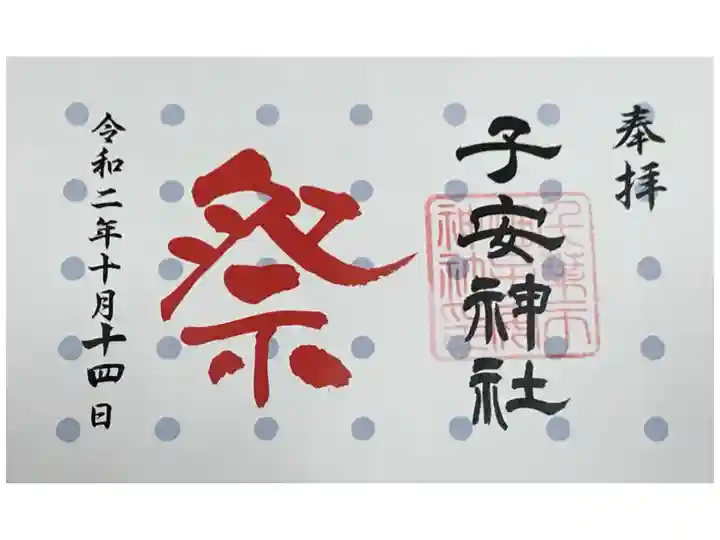 奉拝
子安神社
祭
令和二年十月十四日